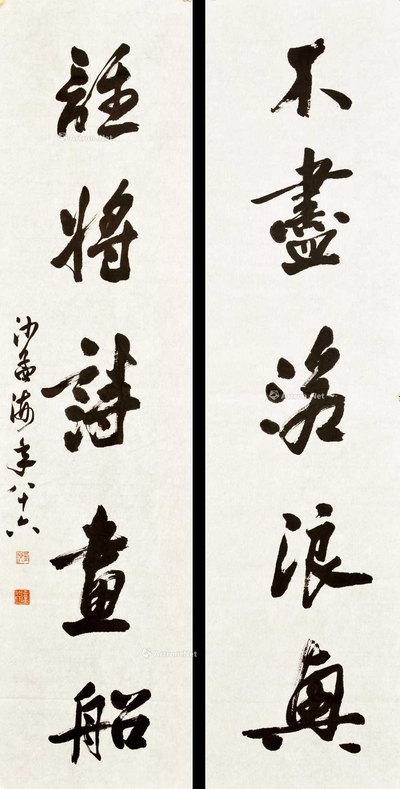 不盡滄浪興
誰將詩畫船
沙孟海年八十六